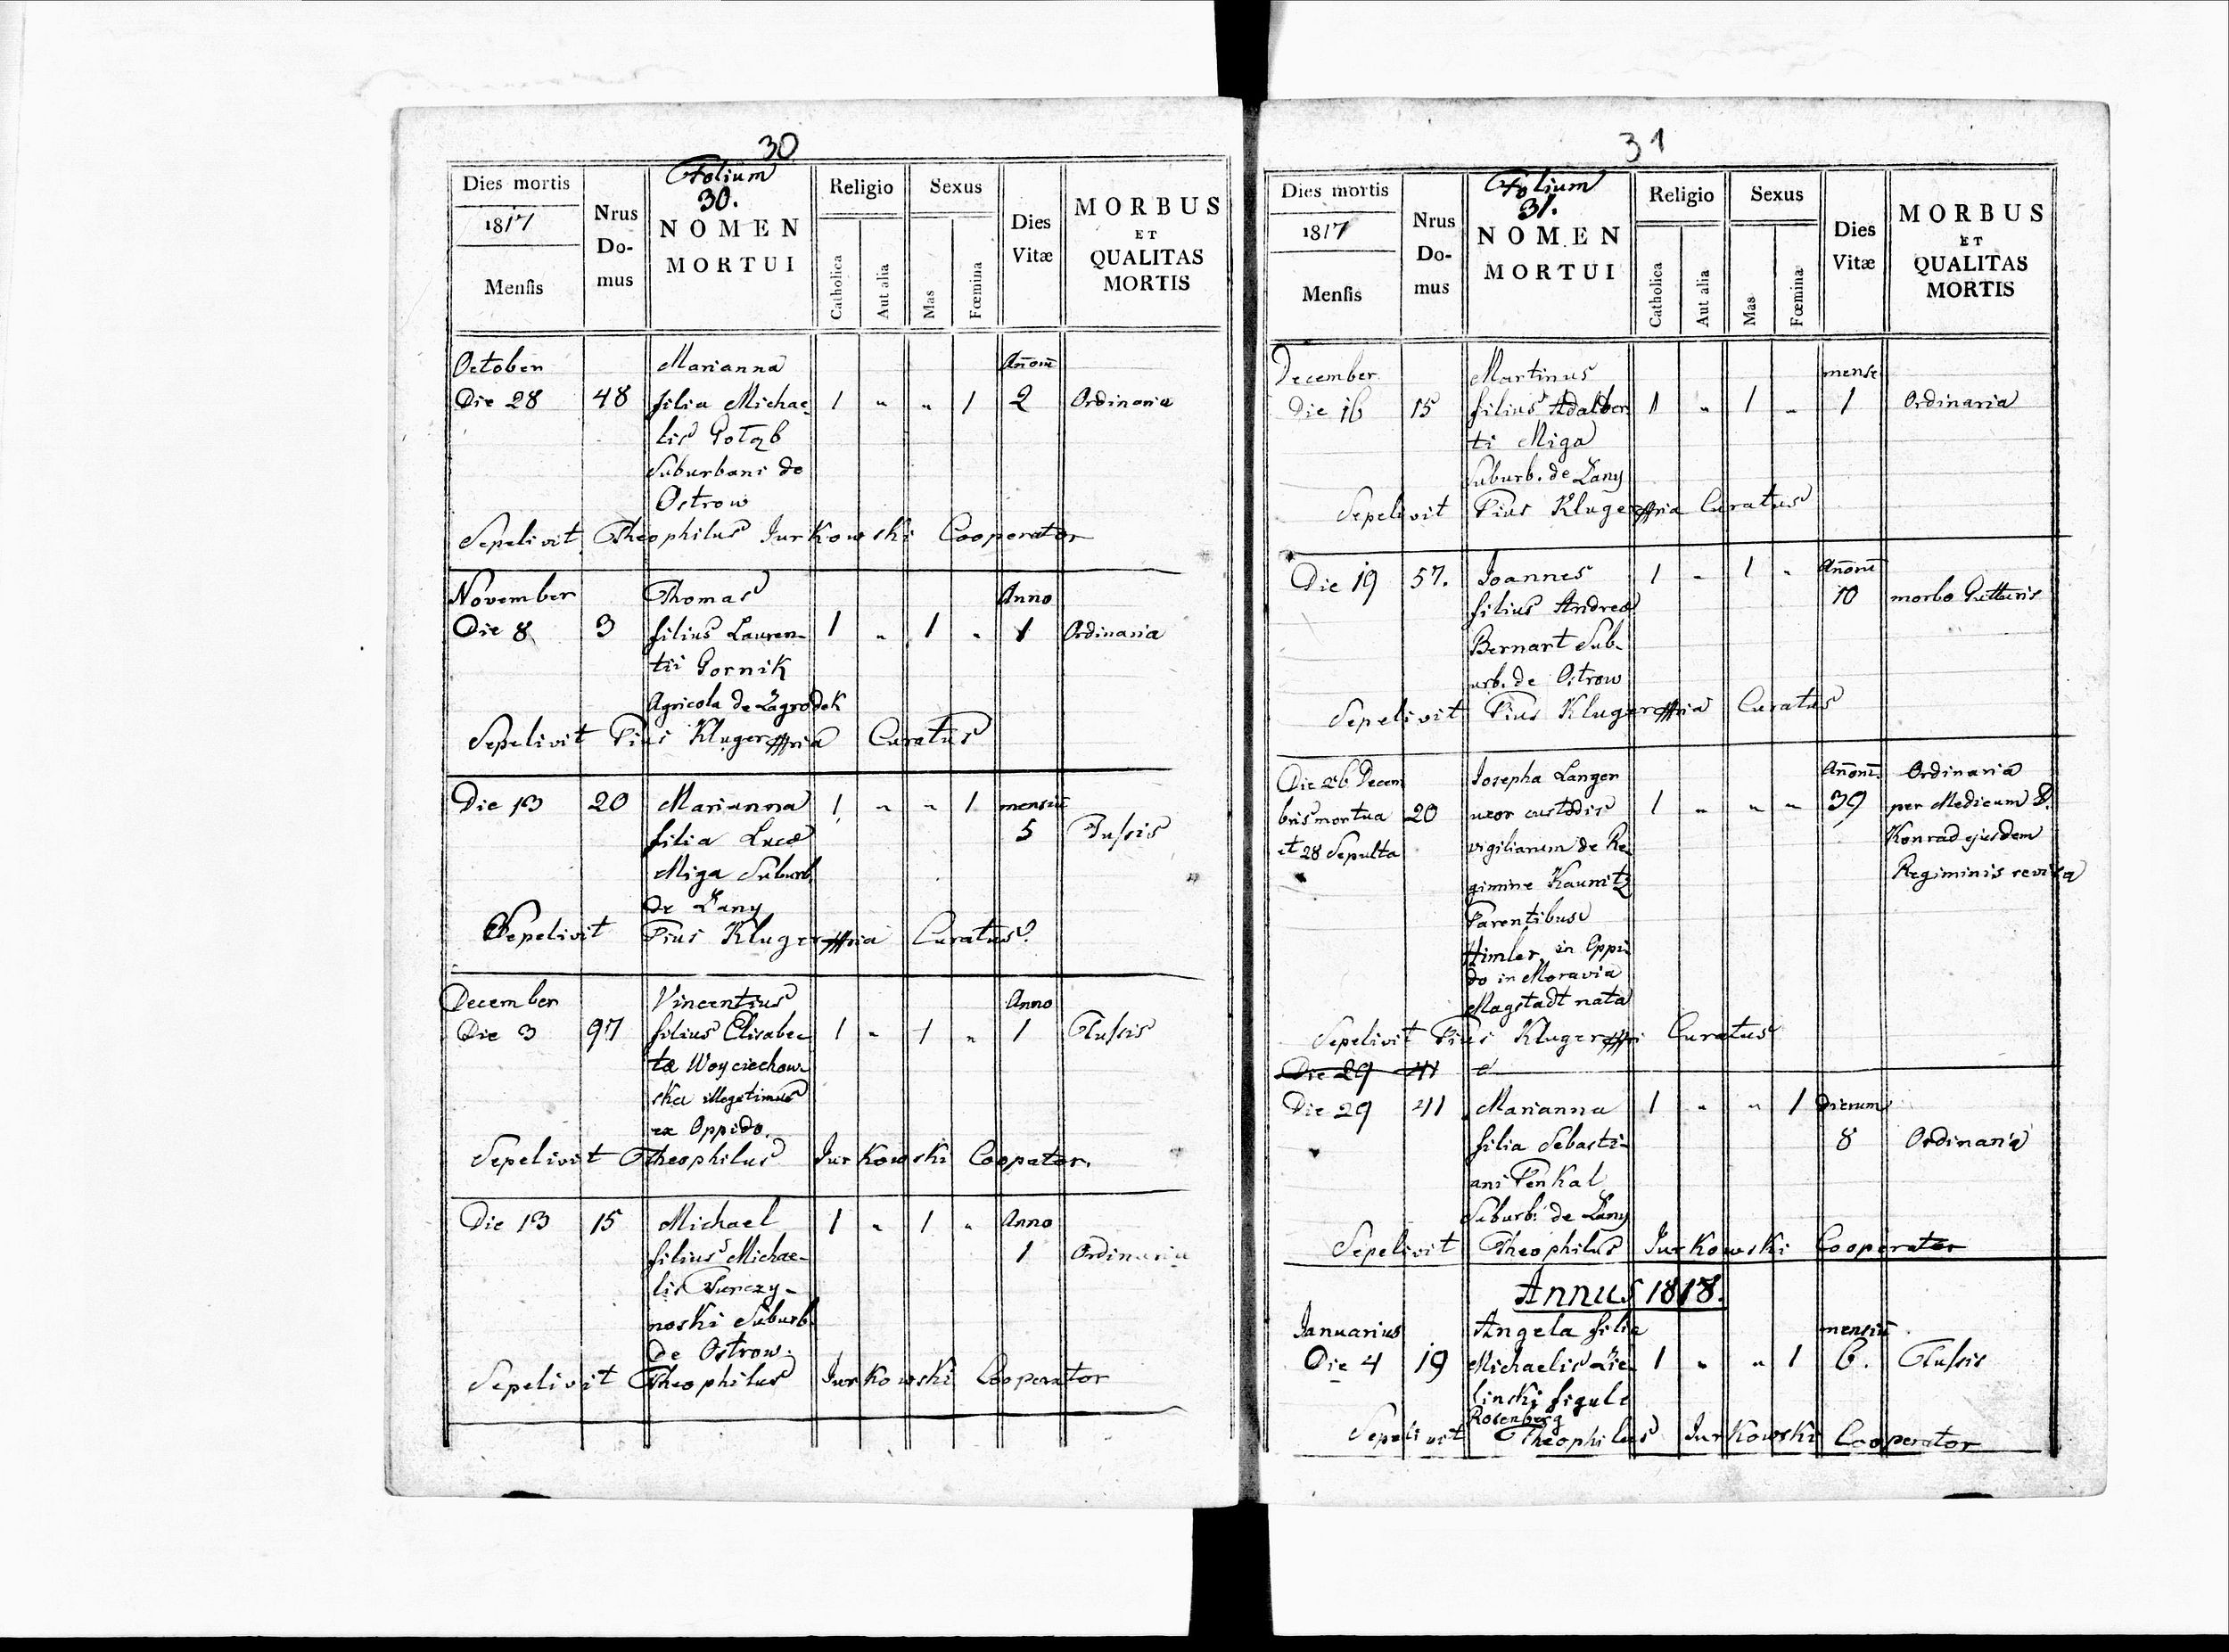 30
Folium
30.
Dies mortis
1817
Mensis
Nrus
Do-
mus
NOMEN
MORTUI
Religio
Catholica
Aut alia
Sexus
Mas
Fœmina
Dies
Vitæ
MORBUS
ET
QUALITAS
MORTIS
October Marianna Añoru̅
Die 28 48 filia Michae- 1 " " 1 2 Ordinaria
lis Gołąb
Suburbani de
Ostrow
Sepelivit Theophilus Jurkowski Cooperator
November Thomas Anno
Die 8 3 filius Lauren- 1 " 1 " 1 Ordinaria
tii Gornik
Agricola de Zagrodek
Sepelivit Pius Kluger Curatus
Die 13 20 Marianna 1 " " 1 mensiu̅
filia Lucæ 5 Tussis
Miga Suburb.
de Łany
Sepelivit Pius Kluger Curatus
December Vincentius Anno
Die 3 97 filius Elisabe- 1 " 1 " 1 Tussis
tæ Woyciechow-
ska illegitimus
ex Oppido.
Sepelivit Theophilus Jurkowski Coopator.
Die 13 15 Michael 1 " 1 " Anno
filius Michae- 1 Ordinaria
lis
noski Suburb.
de Ostrow.
Sepelivit Theophilus Jurkowski Cooperator
31
Folium
31.
Dies mortis
1817
Mensis
Nrus
Do-
mus
NOMEN
MORTUI
Religio
Catholica
Aut alia
Sexus
Mas
Fœmina
Dies
Vitæ
MORBUS
ET
QUALITAS
MORTIS
December Martinus mense
Die 16 15 filius Adalber 1 " 1 " 1 Ordinaria
ti Miga
Suburb. de Łany
Sepelivit Pius Kluger Curatus
Die 19 57. Joannes 1 " 1 " Añoru̅
filius Andreæ 10 morbo Gutturis
Bernart Sub-
urb. de Ostrow
Sepelivit Pius Kluger Curatus
Die 26 Decem Josepha Langer Añoru̅. Ordinaria
bris mortua 20 uxor custodis 1 " " " 39 per Medicum D.
et 28 Sepulta vigiliarum de Re- Konrad ejusdem
gimine Kaunitz Regiminis revisa
Parentibus
Himler, in Oppi-
do in Moravia
Magstadt nata
Sepelivit Pius Kluger Curatus
Die 29 41
Die 29 41 Marianna 1 " " 1 Dierum
filia Sebasti- 8 Ordinaria
ani Penkal
Suburb. de Łany
Sepelivit Theophilus Jurkowski Cooperator
Annus 1818.
Januarius Angela filia mensiu̅
Die 4 19 Michaelis Zie- 1 " " 1 6. Tussis
linski figuli
Rosenberg
Sepelivit Theophilus Jurkowski Cooperator